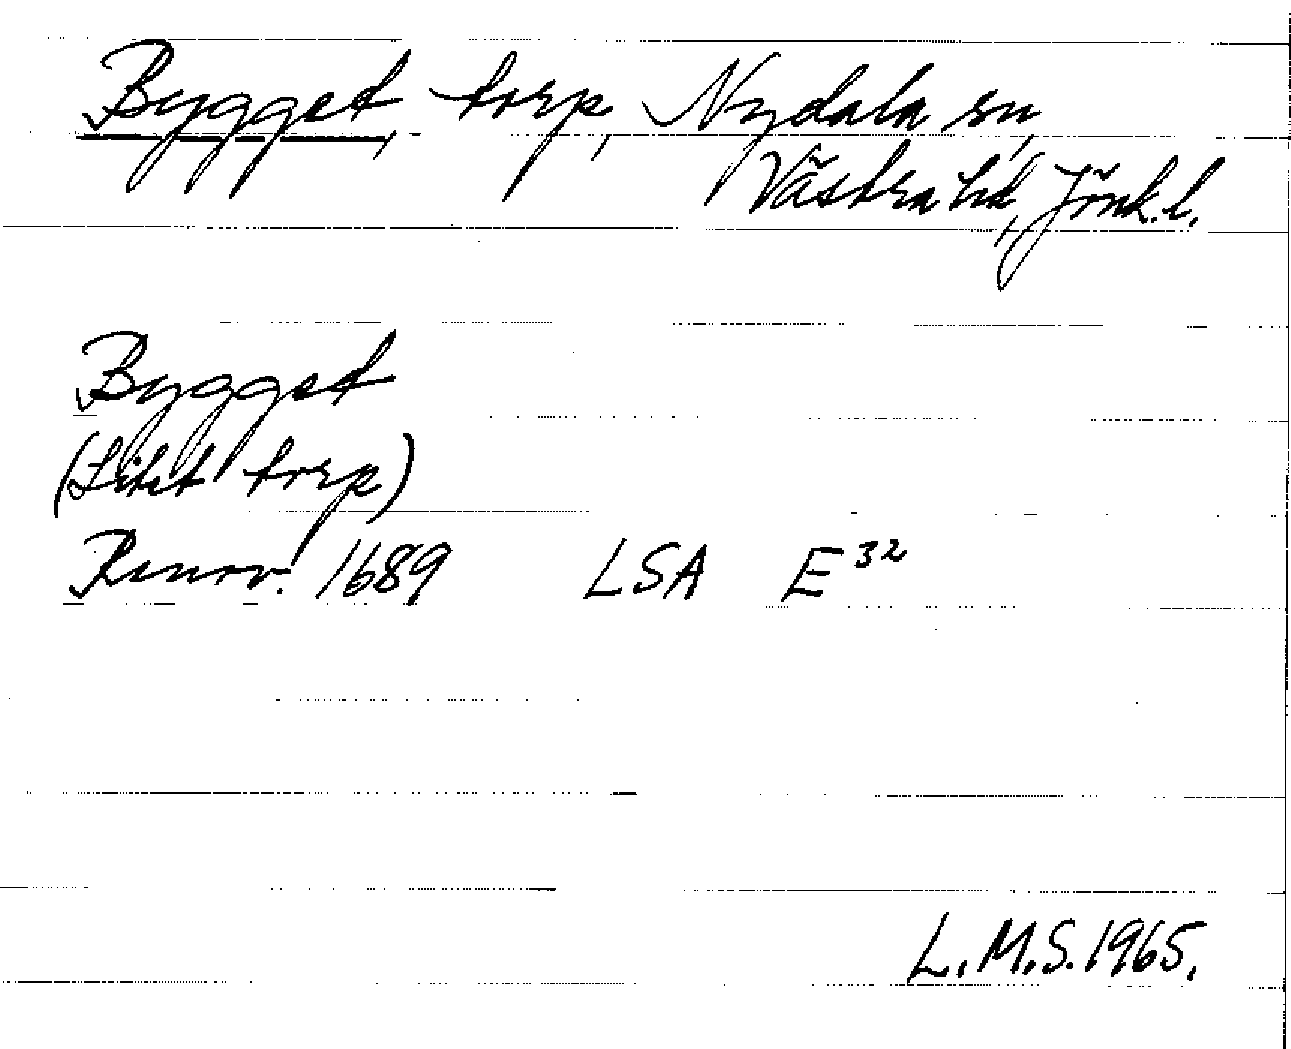 Bygget, torp, Nydala sn,
Västra hd, Jönk. l.
Bygget
(Litet torp)
Renov. 1689 LSA E³²
L.M.S. 1965.